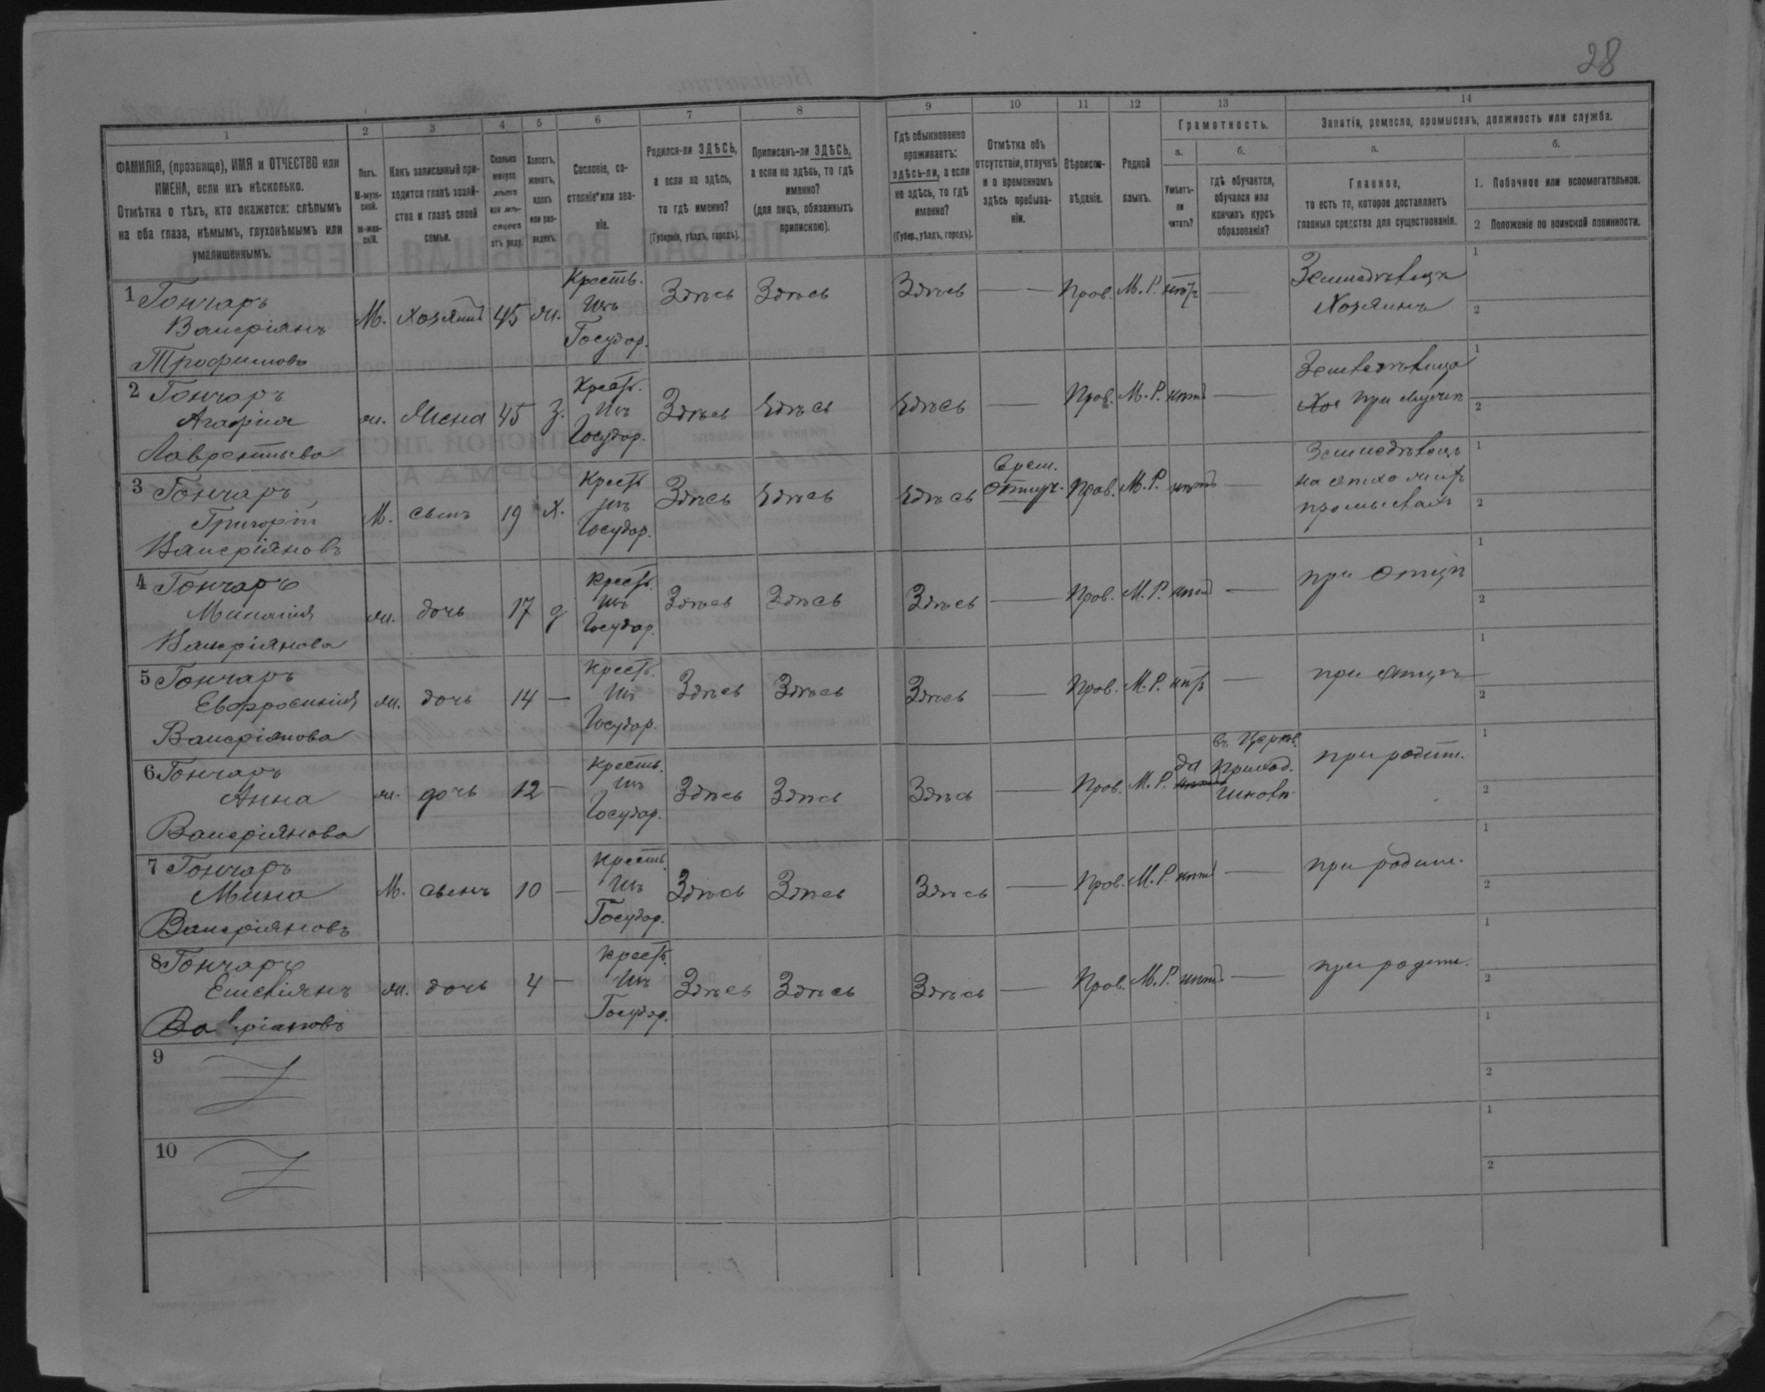 28
1 2 3 4 5 6 7 8 9 10 11 12 13 14
ФАМИЛІЯ, (прозвище), ИМЯ и ОТЧЕСТВО или
ИМЕНА, если ихъ нѣсколько.
Отмѣтка о тѣхъ, кто окажется: слѣпымъ
на оба глаза, нѣмымъ, глухонѣмымъ или
умалишеннымъ.
Полъ.
М-муж-
ской.
ж-жен-
скій.
Какъ записанный при-
ходится главѣ хозяй-
ства и главѣ своей
семьи.
Сколько
минуло
лѣтъ
или мѣся-
цевъ
отъ роду.
Холостъ,
женатъ,
вдовъ
или раз-
веденъ.
Сословіе, со-
стояніе или зва-
ніе.
Родился-ли ЗДѢСЬ,
а если не здѣсь,
то гдѣ именно?
(Губернія, уѣздъ, городъ).
Приписанъ-ли ЗДѢСЬ,
а если не здѣсь, то гдѣ
именно?
(для лицъ, обязанныхъ
припискою).
Гдѣ обыкновенно
проживаетъ:
здѣсь-ли, а если
не здѣсь, то гдѣ
именно?
(Губер., уѣздъ, городъ).
Отмѣтка объ
отсутствіи, отлучкѣ
и о временномъ
здѣсь пребыва-
ніи.
Вѣроиспо-
вѣданіе.
Родной
языкъ.
Грамотность.
а.
Умѣетъ-
ли
читать?
б.
гдѣ обучается,
обучался или
кончилъ курсъ
образованія?
Занятія, ремесло, промыселъ, должность или служба.
а.
Главное,
то есть то, которое доставляетъ
главныя средства для существованія.
б.
1. Побочное или вспомогательное.
2 Положеніе по воинской повинности.
1 Гончаръ
Валеріянъ
Трофимовъ
М. хозяинъ 45 ж.
Крестья.
Изъ
Государ.
Здѣсь Здѣсь Здѣсь — Прав. М. Р. нѣтъ —
Земледѣлецъ
Хозяинъ
1
2
2 Гончаръ
Агафия
Лаврентьева
ж. Жена 45 З.
Крест.
Изъ
Государ.
Здѣсь Здѣсь Здѣсь — Прав. М. Р. нѣтъ —
Хоз при мужѣ
1
2
3 Гончаръ
Григорій
Валеріяновъ
М. сынъ 19 Х.
Крест
Изъ
Государ.
Здѣсь Здѣсь Здѣсь
Врем.
Отлуч.
Прав. М. Р. нѣтъ —
Земледѣлецъ
на отхожихъ
промыслахъ
1
2
4 Гончаръ
Валеріянова
ж. дочь 17 д
Крест
Изъ
Государ.
Здѣсь Здѣсь Здѣсь — Прав. М. Р. нѣтъ —
при отцѣ
1
2
5 Гончаръ
Евфросинія
Валеріянова
ж. дочь 14 —
Крест.
Изъ
Государ.
Здѣсь Здѣсь Здѣсь — Прав. М. Р. нѣтъ —
при отцѣ
1
2
6 Гончаръ
Анна
Валеріянова
ж. дочь 12 —
Крестья.
Изъ
Государ.
Здѣсь Здѣсь Здѣсь — Прав. М. Р.
да
нѣтъ
въ Церков.
Приход.
Школѣ
при родит.
1
2
7 Гончаръ
Мина
Валеріяновъ
М. сынъ 10 —
Крестья
Изъ
Государ.
Здѣсь Здѣсь Здѣсь — Прав. М. Р. нѣтъ —
при родит.
1
2
8 Гончаръ
Валеріановъ
ж. дочь 4 —
Крест.
Изъ
Государ.
Здѣсь Здѣсь Здѣсь — Прав. М. Р. нѣтъ —
при родит.
1
2
9
1
2
10
1
2